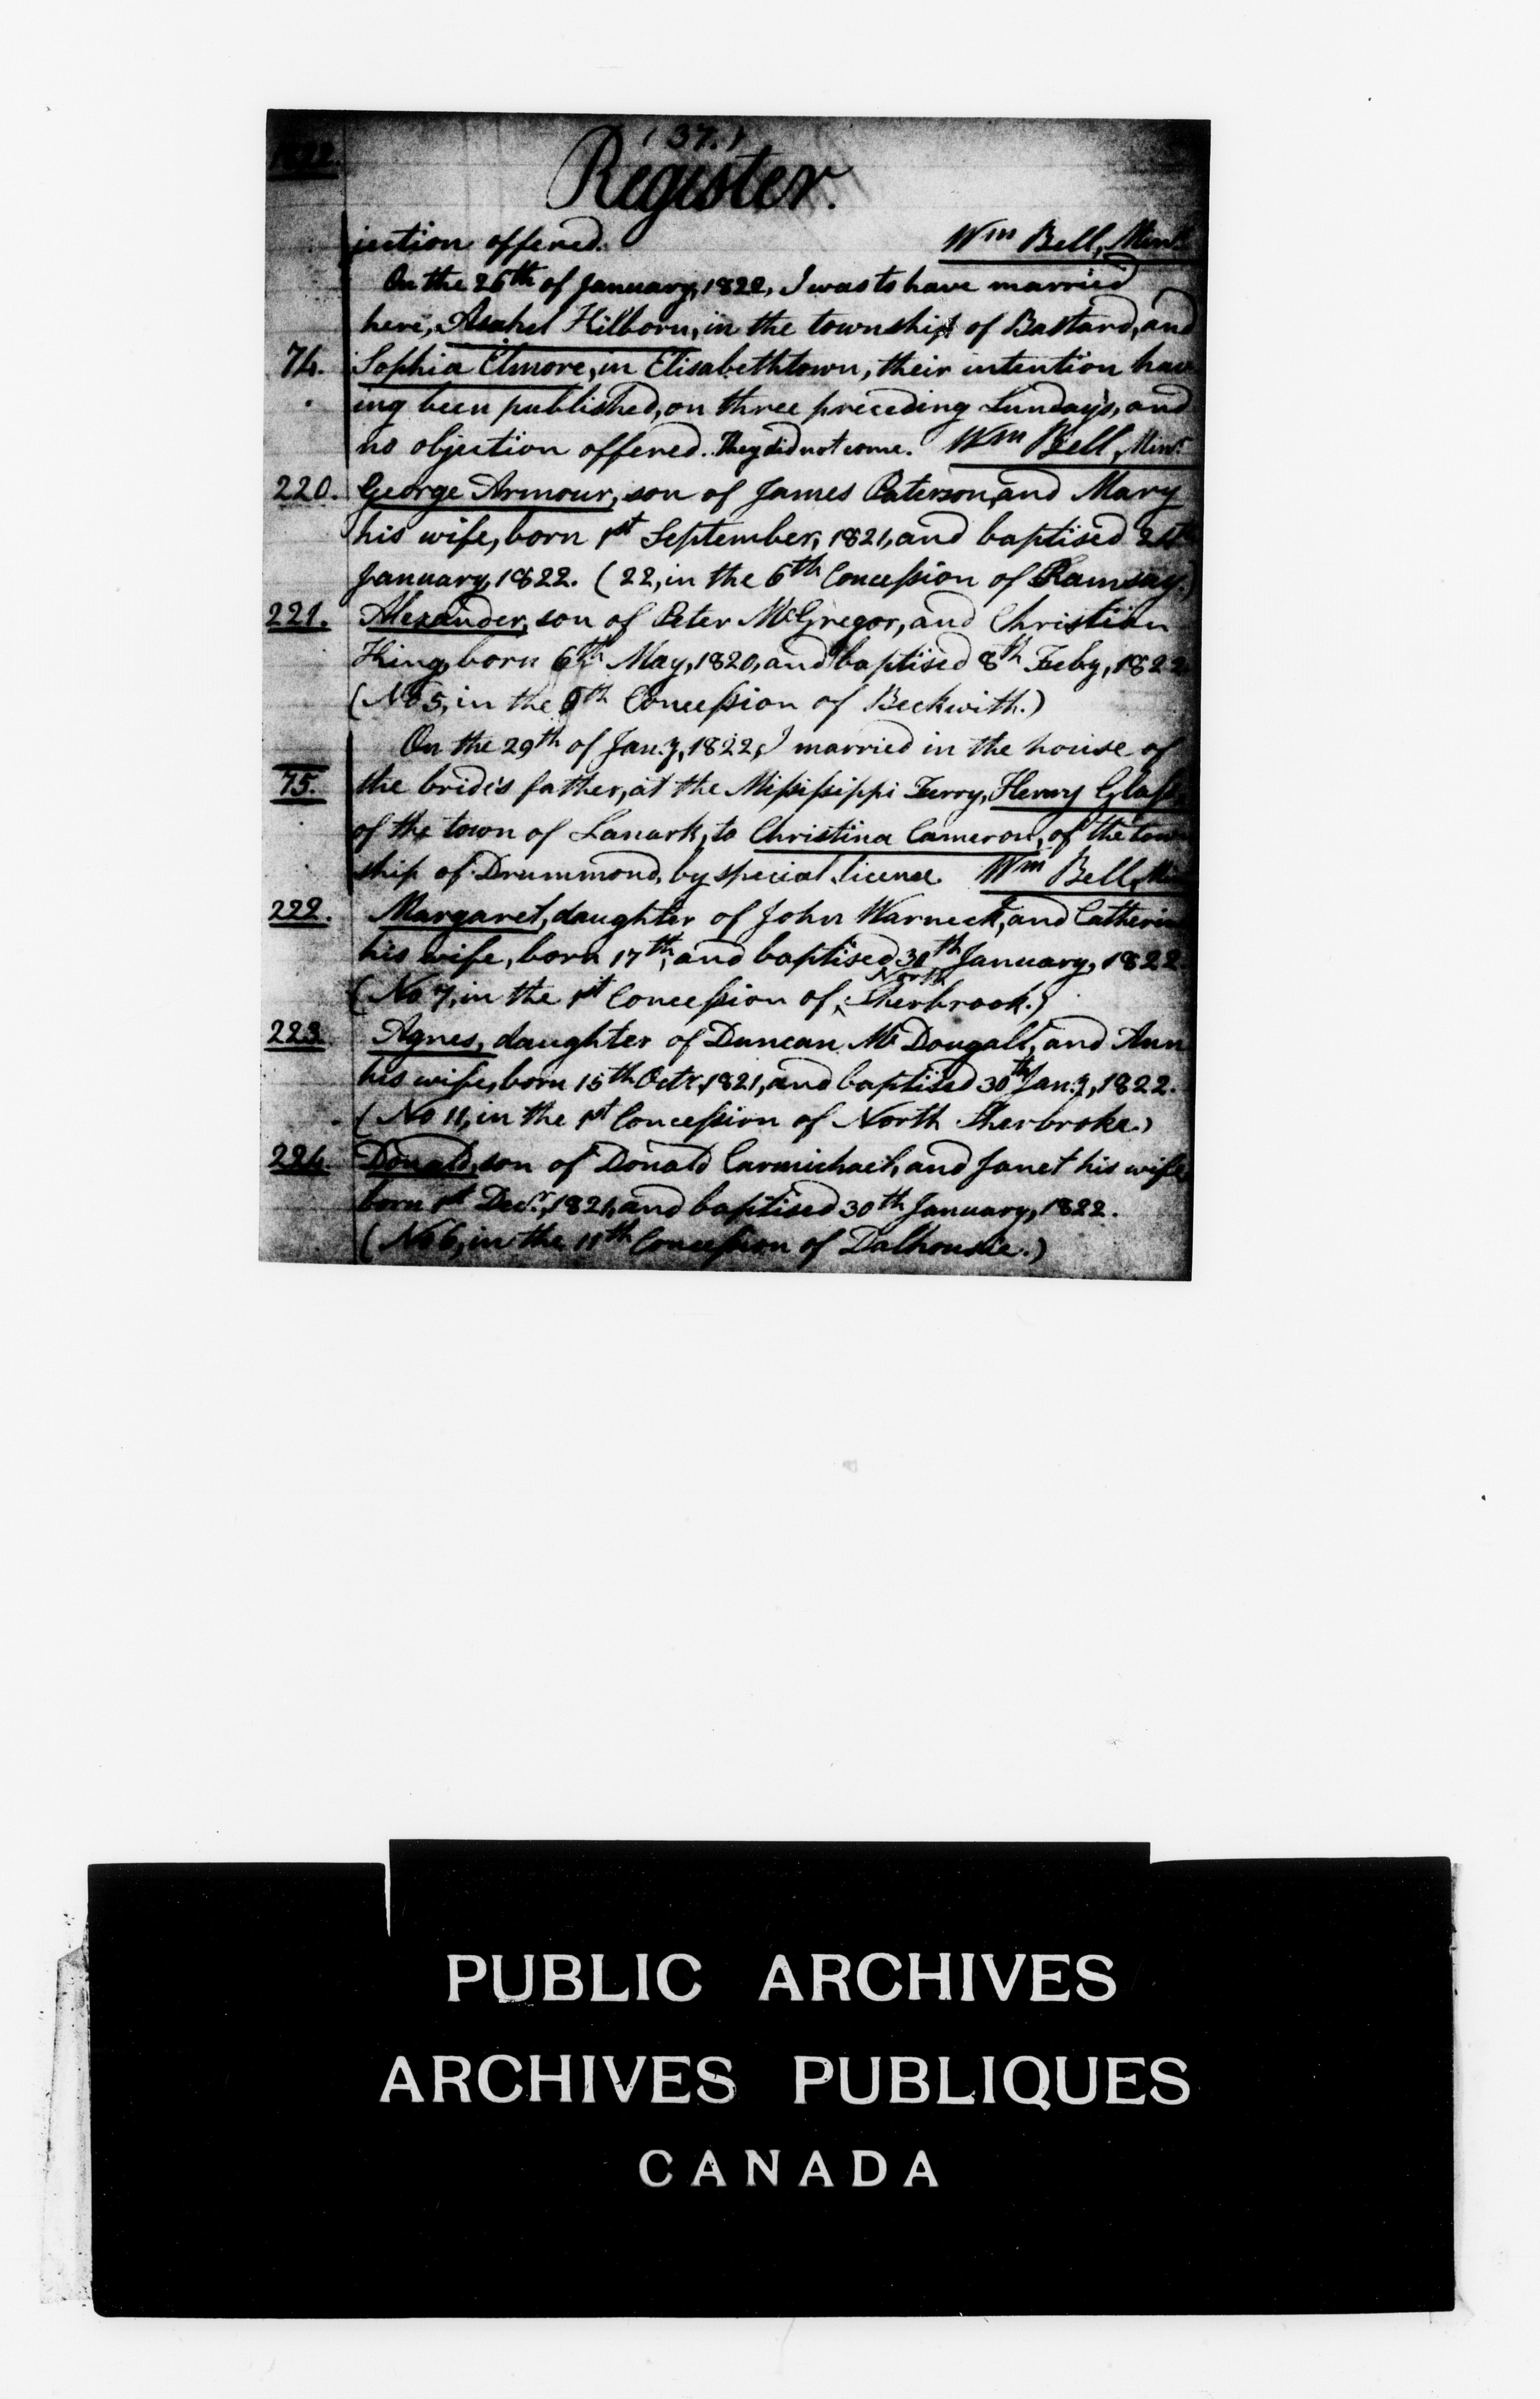 (37.)
1822.
Register.
jection offered. Wm Bell, Minr.
On the 26th of January, 1822, I was to have married
here, Asahel Hilborn, in the township of Bastard, and
74. Sophia Elmore, in Elisabethtown, their intention hav
ing been published, on three preceding Sundays, and
no objection offered. They did not come. Wm Bell, Minr.
220. George Armour, son of James Paterson, and Mary
his wife, born 1st September, 1821, and baptised
January, 1822. (22, in the 6th Concession of Ramsay.)
221. Alexander, son of Peter McGregor, and Christian
King, born 6th May, 1820, and baptised 8th Feby, 1822
(No 5, in the 9th Concession of Beckwith.)
On the 29th of Jan.y, 1822, I married in the house of
75. the bride's father, at the Missisippi Ferry, Henry Glass,
of the town of Lanark, to Christina Cameron, of the town
ship of Drummond, by special licence. Wm Bell, Min
222. Margaret, daughter of John Warneck, and Catherin
his wife, born 17th, and baptised 30th January, 1822.
(No 7, in the 1st Concession of North Sherbrook.)
223. Agnes, daughter of Duncan McDougall, and Ann
his wife, born 15th Octr, 1821, and baptised 30th Jan.y, 1822.
(No 11, in the 1st Concession of North Sherbroke.)
224. Donald, son of Donald Carmichael, and Janet his wife,
born 1st Decr., 1821, and baptised 30th January, 1822.
(No 6, in the 11th Concession of Dalhousie.)
PUBLIC ARCHIVES
ARCHIVES PUBLIQUES
CANADA